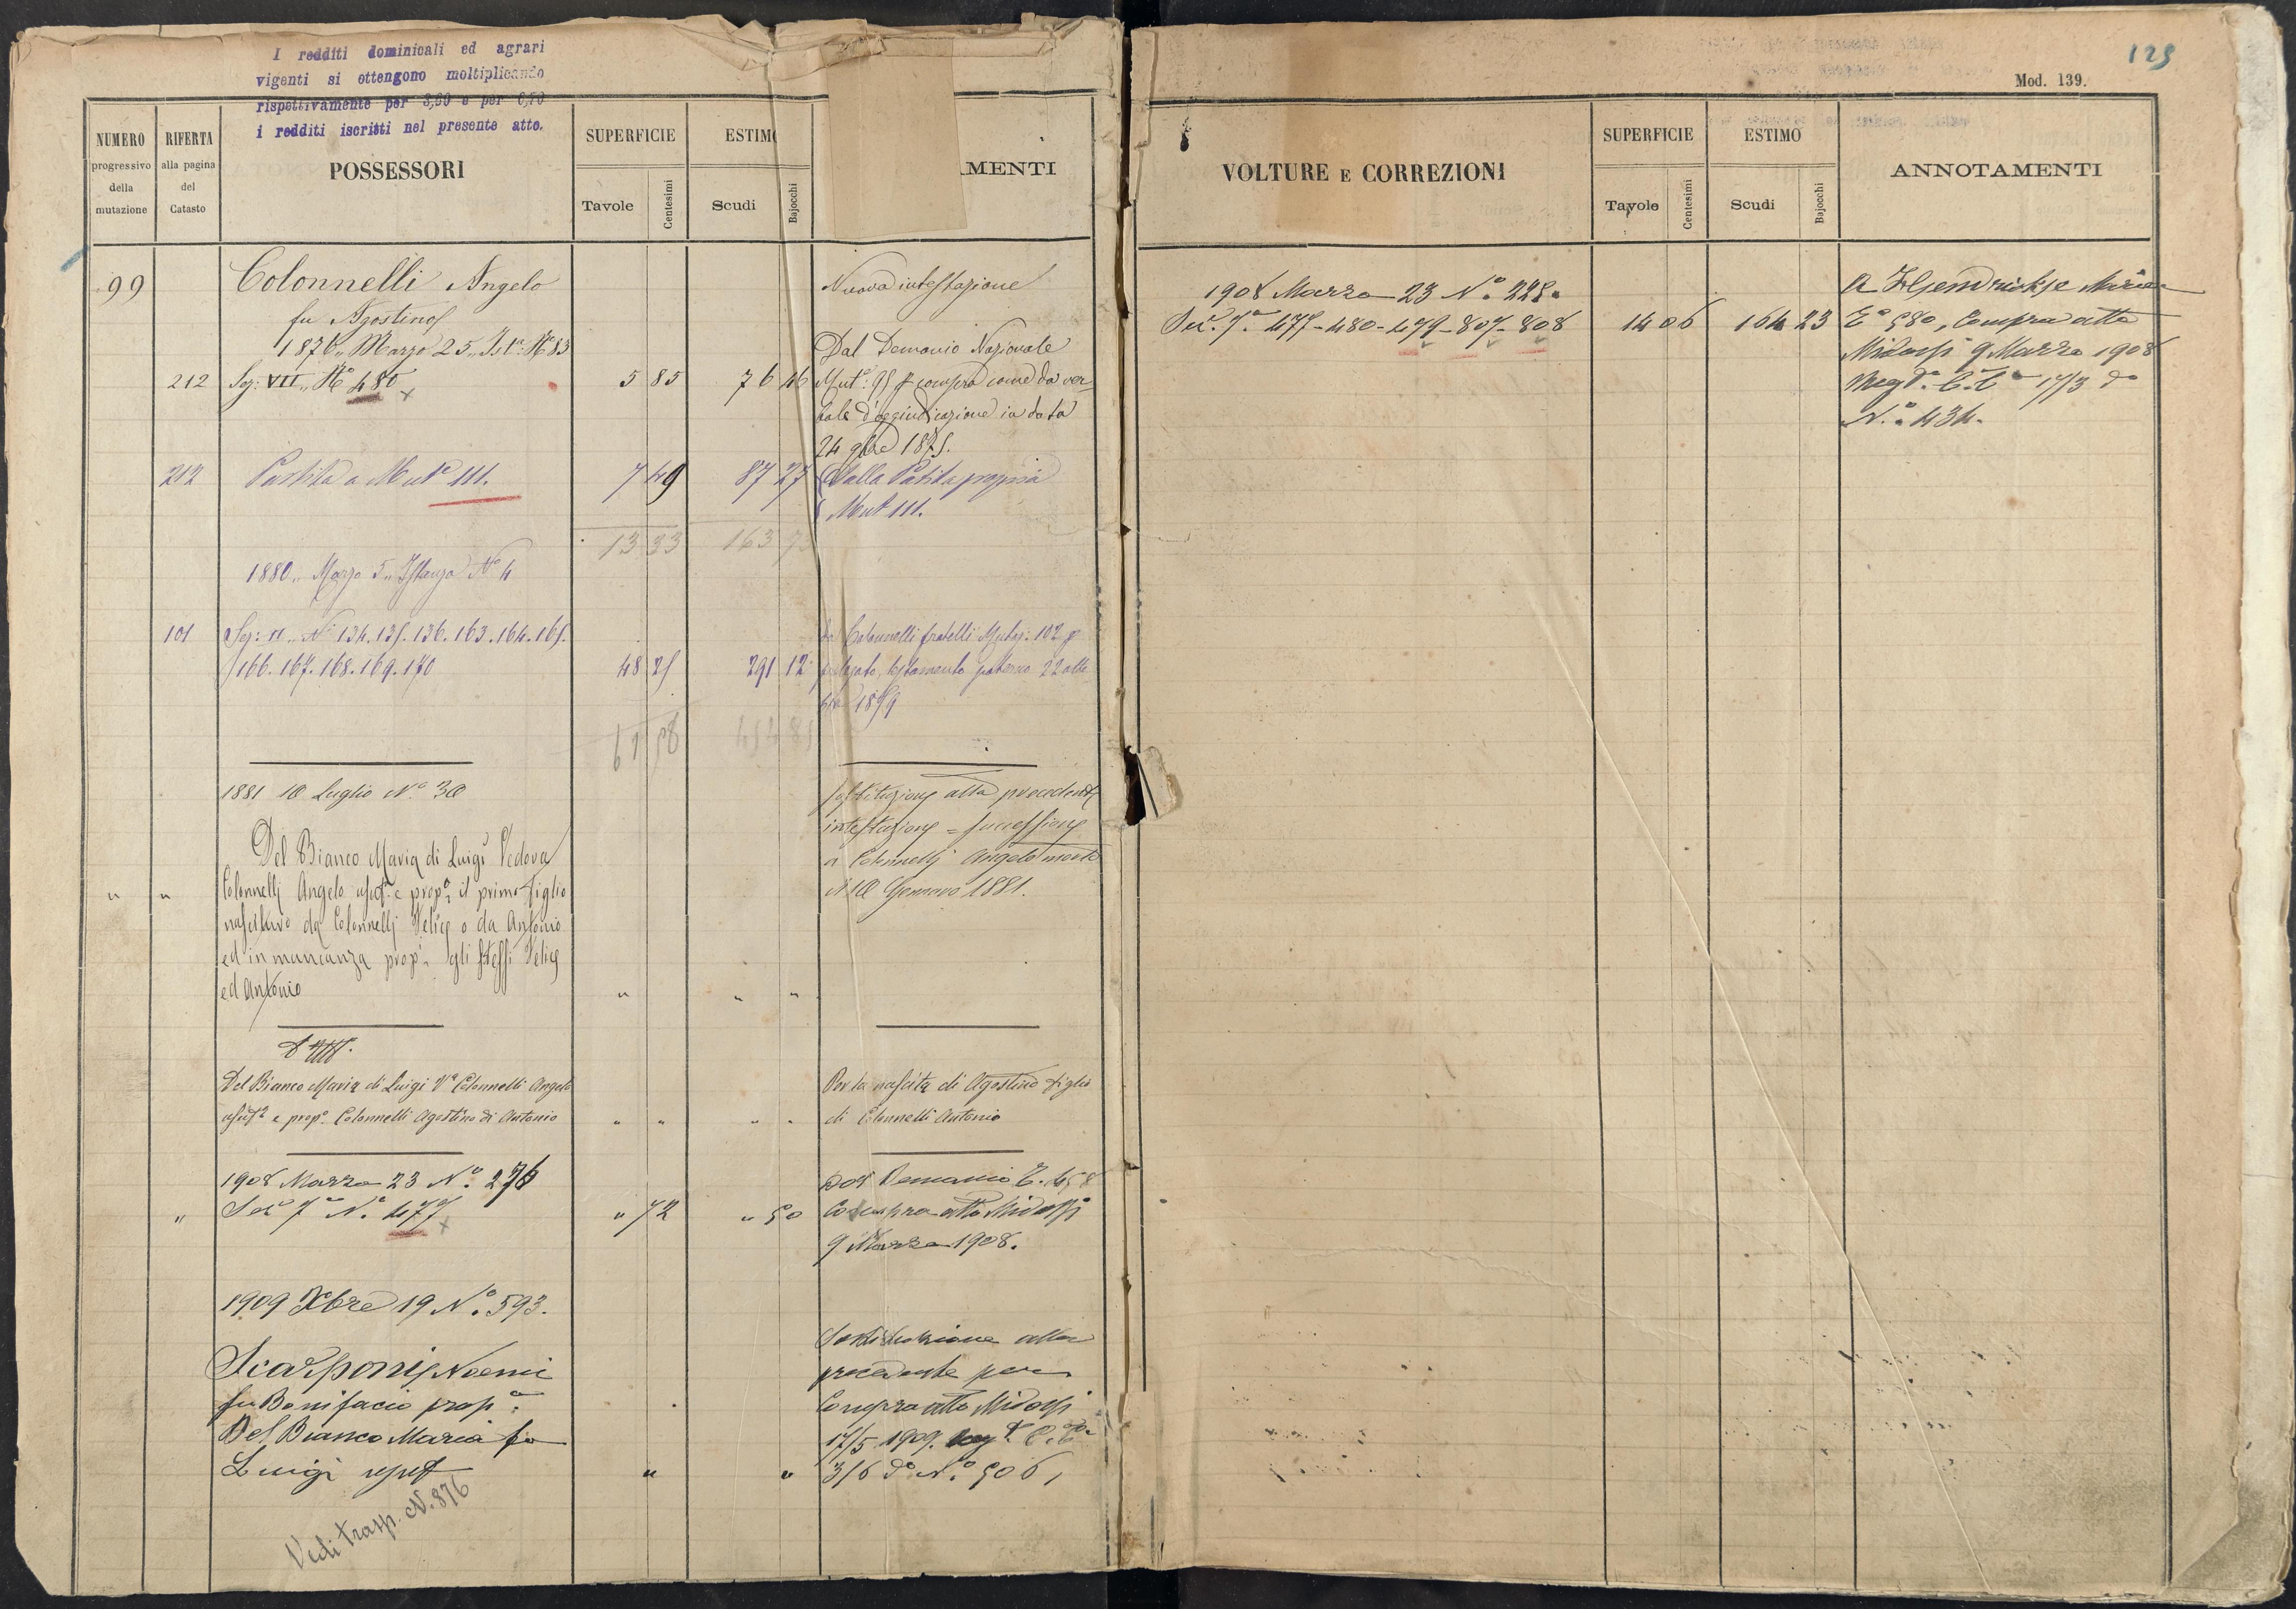 I redditi dominicali ed agrari
vigenti si ottengono moltiplicando
rispettivamente per 3,60 e per 6,70
i redditi iscritti nel presente atto.
NUMERO
progressivo
della
mutazione
RIFERTA
alla pagina
del
Catasto
POSSESSORI
SUPERFICIE
Tavole
Centesimi
ESTIMO
Scudi
Bajocchi
AMENTI
99
Colonnelli Angelo
fu Agostino
Nuova intestazione
1876,, Marzo 25,, Ist.a N.o 83
Dal Demanio Nazionale
212 Sez: VII,, N.o 480 5 85 76 46 Mut.e: 95 p compra come da ver-
bale d'aggiudicazione in data
24 9bre 1875.
212 Partita a Mut.e 111. 7 49 87 27 Dalla Partita propria
Mut 111.
13 33 163 73
1880,, Marzo 5,, Istanza N.o 4
101 Sez: VI,, N.i 134. 135. 136. 163. 164. 165. da Colonnelli fratelli Mutaz: 102 p
166. 167. 168. 169. 170 48 25 291 12 prelegato, testamento paterno 22
1879
61 58 454 85
1881 10 Luglio N.o 30
Sostituzione alla precedente
intestazione = successione
a Colonnelli Angelo morto
il 10 Gennaro 1881.
Del Bianco Maria di Luigi Vedova
" " Colonnelli Angelo usuf.a e prop.o il primo figlio
nascituro da Colonnelli Felice o da Antonio
ed in mancanza prop.i gli stessi Felice
ed Antonio " " "
Del Bianco Maria di Luigi V.a Colonnelli Angelo Per la nascita di Agostino figlio
usuf.a e prop.o Colonnelli Agostino di Antonio " " " " di Colonnelli Antonio
1908 Marzo 23 N.o 276 Dal Demanio T. 458
" Sez 7.a N.o 477 " 72 " 50 Compra atto Midossi
9 Marzo 1908.
1909 Xbre 19 N.o 593.
Sostituzione alla
Scarponi Noemi precedente per
fu Bonifacio prop.a Compra atto Midossi
Del Bianco Maria fu 17/5 1909. Reg.o C. C.a
Luigi usuf " " 3/6 d.o N.o 506,
Vedi trasp. N. 876
125
Mod. 139.
VOLTURE E CORREZIONI
SUPERFICIE
Tavole
Centesimi
ESTIMO
Scudi
Bajocchi
ANNOTAMENTI
1908 Marzo 23 N.o 228.
Sez. 7.a 477-480-479-807-808 14 06 164 23
A Hjendrickje Maria
T.o 580, Compra atto
Midossi 9 Marzo 1908
Reg.o C. C.a 17/3 d.o
N.o 434.